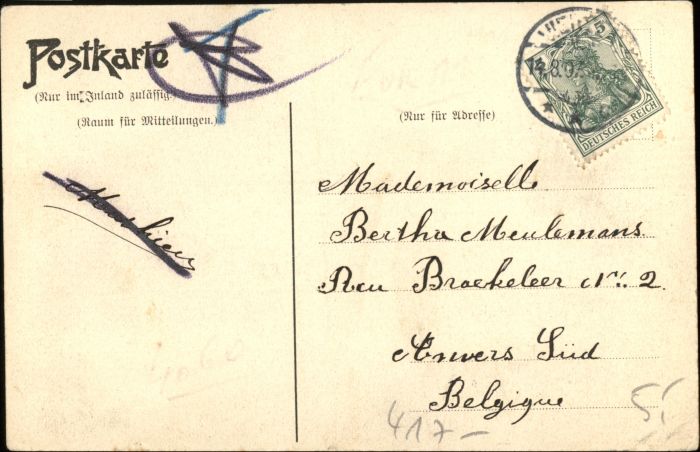 Postkarte
(Nur im Inland zulässig.)
(Raum für Mitteilungen.)
(Nur für Adresse)
5
DEUTSCHES REICH
Mademoiselle
Bertha Meulemans
Reu Braekeleer Nr. 2
Anvers Süd
Belgique
417-
5.